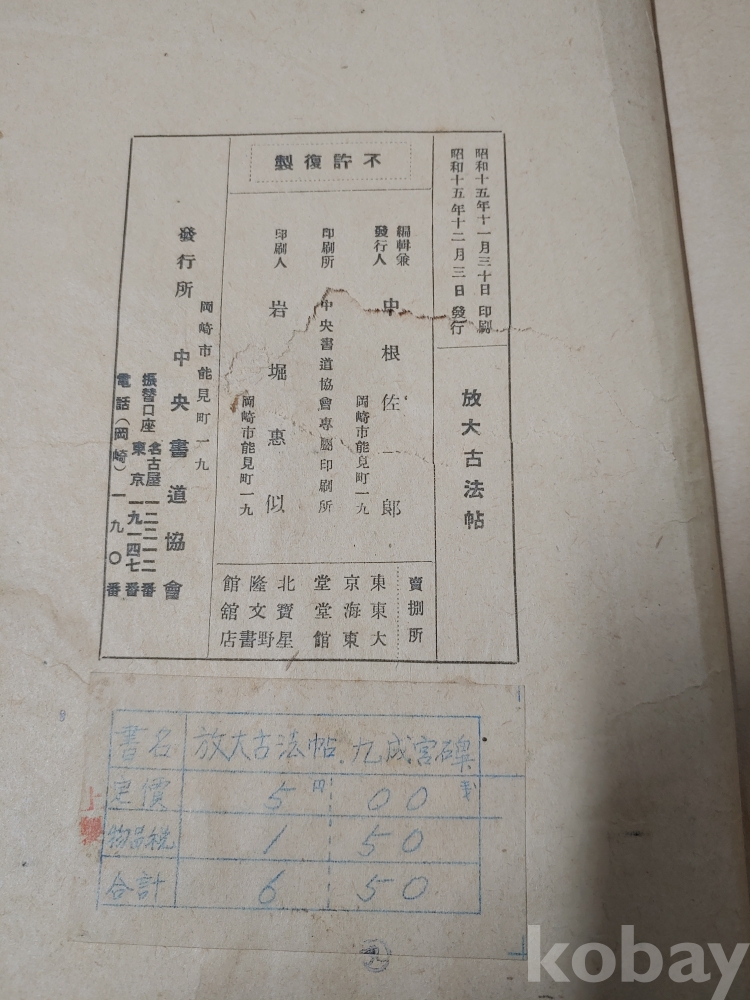 昭和十五年十一月三十日 印刷
昭和十五年十二月三日 發行
放大古法帖
不許復製
編輯兼
發行人 中根佐一郎
岡崎市能見町一九
印刷所 中央書道協會專屬印刷所
印刷人 岩堀惠似
岡崎市能見町一九
賣捌所
東京堂 北隆館
東海堂 寶文舘
大東館 星野書店
岡崎市能見町一九
發行所 中央書道協會
振替口座 名古屋 一二二一二番
東京 一九一四七番
電話(岡崎)一九〇番
書名 放大古法帖 九成宮碑
定價 5円 00
物品税 1 50
合計 6 50
kobay